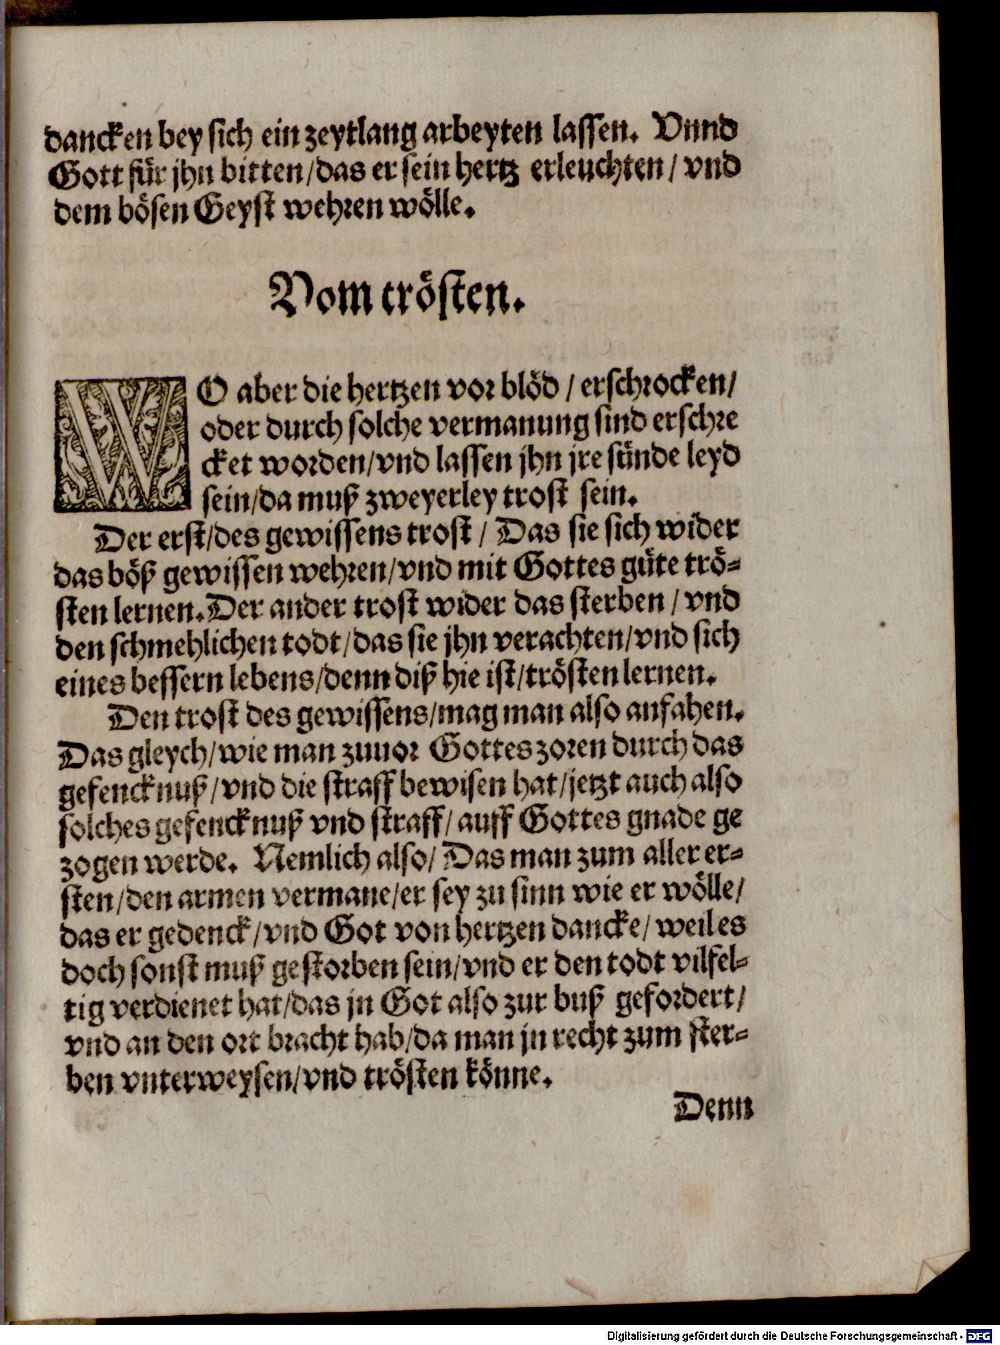 dancken bey sich ein zeytlang arbeyten lassen. Vnnd
Gott für jhn bitten/das er sein hertz erleuchten/ vnd
dem bösen Geyst wehren wölle.
Vom trösten.
WO aber die hertzen vor blöd / erschrocken/
oder durch solche vermanung sind erschre
cket worden/vnd lassen jhn jre sünde leyd
sein/da muß zweyerley trost sein.
Der erst/des gewissens trost / Das sie sich wider
das böß gewissen wehren/vnd mit Gottes güte trö-
sten lernen.Der ander trost wider das sterben / vnd
den schmehlichen todt/das sie jhn verachten/vnd sich
eines bessern lebens/denn diß hie ist/trösten lernen.
Den trost des gewissens/mag man also anfahen.
Das gleych/wie man zuuor Gottes zoren durch das
gefencknuß/vnd die straff bewisen hat/jetzt auch also
solches gefencknuß vnd straff/ auff Gottes gnade ge
zogen werde. Nemlich also/ Das man zum aller er-
sten/den armen vermane/er sey zu sinn wie er wölle/
das er gedenck/vnd Got von hertzen dancke/ weil es
doch sonst muß gestorben sein/vnd er den todt vilfel-
tig verdienet hat/das jn Got also zur buß gefordert/
vnd an den ort bracht hab/da man jn recht zum ster-
ben vnterweysen/vnd trösten könne.
Denn
Digitalisierung gefördert durch die Deutsche Forschungsgemeinschaft - DFG